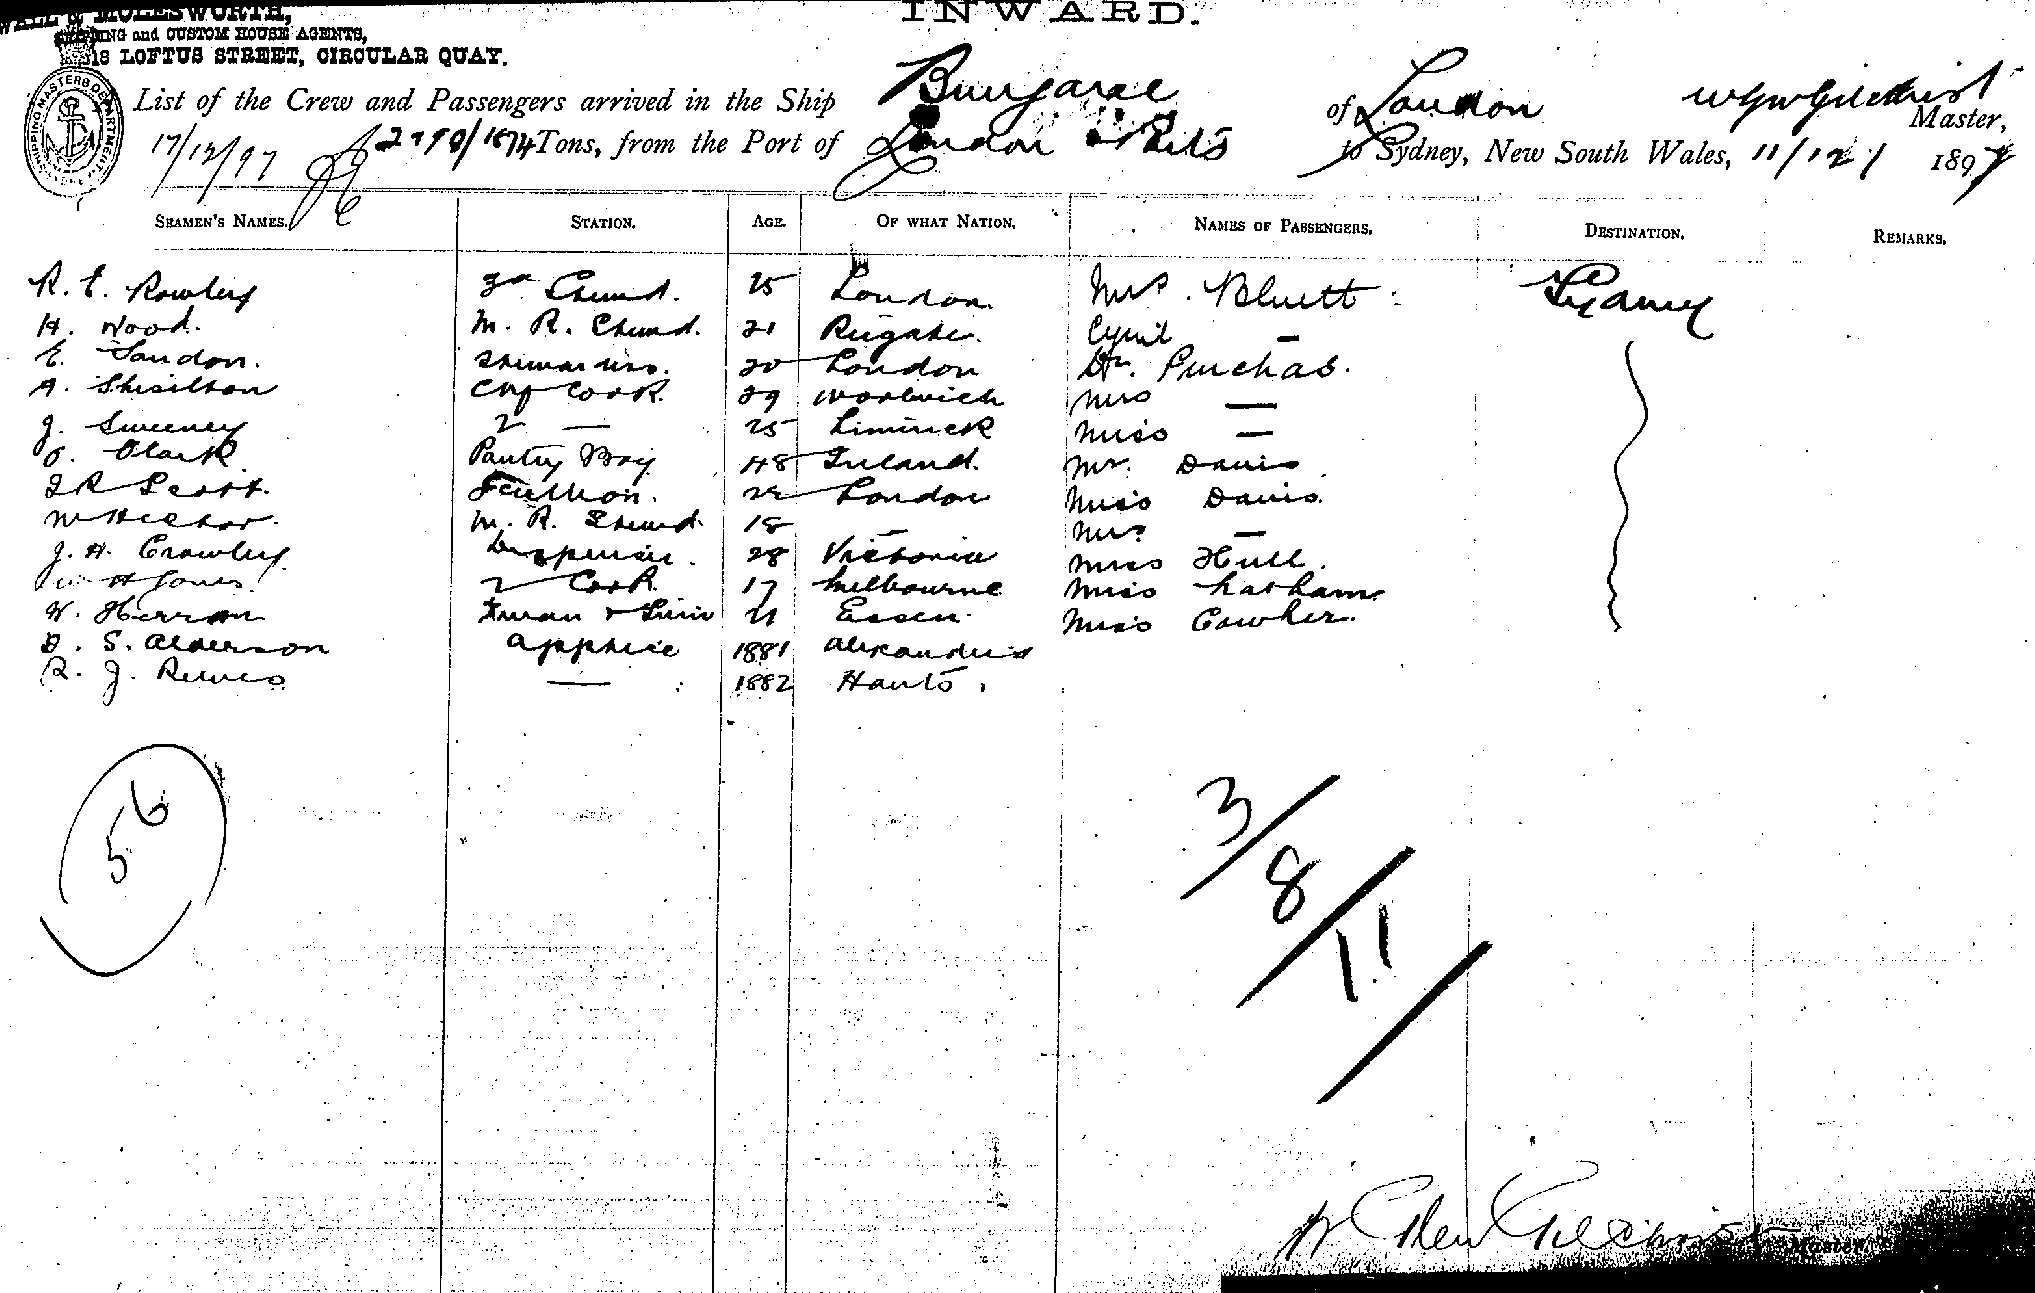 WALL & MOLESWORTH,
SHIPPING and CUSTOM HOUSE AGENTS,
18 LOFTUS STREET, CIRCULAR QUAY.
INWARD.
SHIPPING MASTERS DEPARTMENT
List of the Crew and Passengers arrived in the Ship Bungaree of London W Glen Gilchrist Master,
17/12/97 Tons, from the Port of London to Sydney, New South Wales, 11/12/ 1897
SEAMEN'S NAMES. STATION. AGE. OF WHAT NATION. NAMES OF PASSENGERS. DESTINATION. REMARKS.
R. E. Rowley 3rd 25 London Mrs. Bluett Sydney
H. Wood. M. R. 21 Reigate Cyril —
E. London. Stewardess. 20 London Dr. Purchas.
A. Shisilton Chf Cook 29 Woolwich Mrs —
J. Sweeney 2 — 25 Limerick Miss —
Clark Pantry Boy 48 Ireland. Mr. Davis
Scott. Scullion. London Miss Davis.
M. R. 18 Mrs —
J. H. Crowley Dispenser. 28 Victoria Miss Hull.
W H Jones 2 Cook 17 Melbourne Miss Latham
W. Herron 21 Essex. Miss Cowher.
D. S. Alderson Apptice 1881 Alexandria
R. J. Reeves — 1882 Hants.
56
3/8/11
W Glen Gilchrist Master.